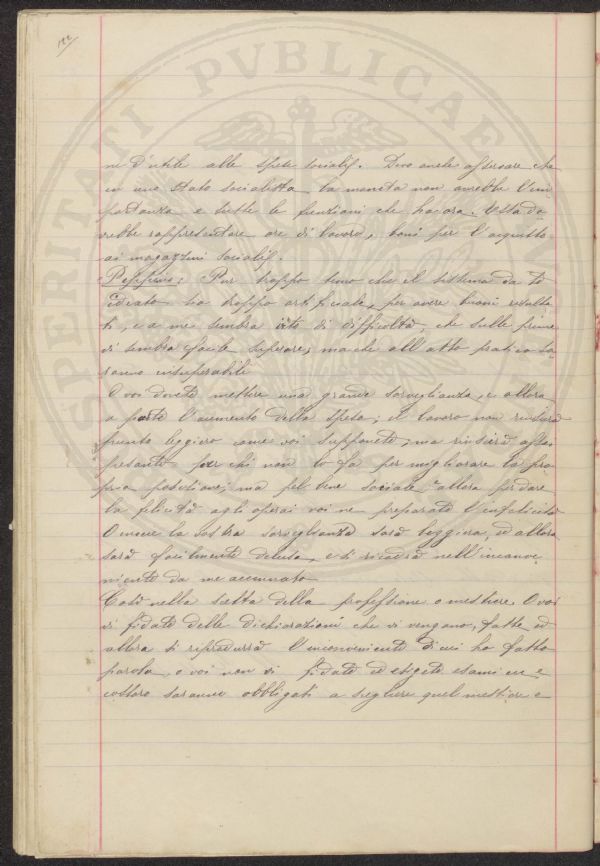 122
ne d'utile alle spese sociali. Devo anche osservare che
in uno stato socialista la moneta non avrebbe l'im
portanza e tutte le funzioni che ha ora. Essa do
vrebbe rappresentare ore di lavoro, boni per l'acquisto
ai magazzini sociali.
Peppino: Pur troppo temo che il sistema da te
ideato sia troppo artificiale, per avere buoni risulta
ti, e a me sembra irto di difficoltà, che sulle prime
vi sembra facile superare, ma che all'atto pratico sa
ranno insuperabili
O voi dovete mettere una grande sorveglianza, e allora
a parte l'aumento della spesa, il lavoro non riuscirà
punto leggiero come voi supponete, ma riuscirà assai
pesante per chi non lo fa per migliorare la pro
pria posizione, ma pel bene sociale e allora per dare
la felicità agli operai voi ne preparate l'infelicità
O invece la vostra sorveglianza sarà leggera, ed allora
sarà facilmente delusa, e si ricadrà nell'inconve
niente da me accennato
Così nella scelta della professione o mestiere. O voi
vi fidate delle dichiarazioni che vi vengano fatte ed
allora si riprodurrà l'inconveniente di cui ho fatto
parola, o voi non vi fidate ed esigete esami e
costoro saranno obbligati a scegliere quel mestiere e
PVBLICAE